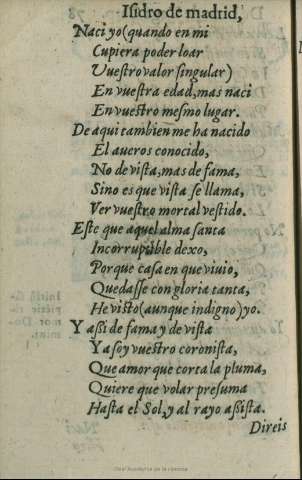 Isidro de madrid,
Naci yo (quando en mi
Cupiera poder loar
Vuestro valor singular)
En vuestra edad, mas naci
En vuestro mesmo lugar.
De aqui tambien me ha nacido
El aueros conocido,
No de vista, mas de fama,
Sino es que vista se llama,
Ver vuestro mortal vestido.
Este que aquel alma santa
Incorruptible dexo,
Porque casa en que viuio,
Quedasse con gloria tanta,
He visto (aunque indigno) yo.
Y assi de fama y de vista
Ya soy vuestro coronista,
Que amor que corta la pluma,
Quiere que volar presuma
Hasta el Sol, y al rayo assista.
Direis